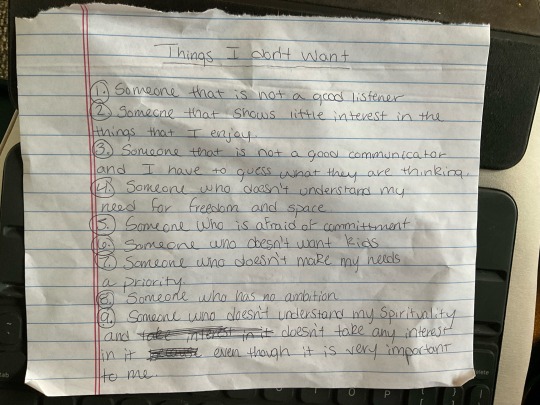 Things I don't want
1. Someone that is not a good listener
2. Someone that shows little interest in the
things that I enjoy.
3. Someone that is not a good communicator
and I have to guess what they are thinking.
4. Someone who doesn't understand my
need for freedom and space
5. Someone who is afraid of committment
6. Someone who doesn't want kids
7. Someone who doesn't make my needs
a priority.
8. Someone who has no ambition
9. Someone who doesn't understand my spirituality
and take interest in it doesn't take any interest
in it even though it is very important
to me.